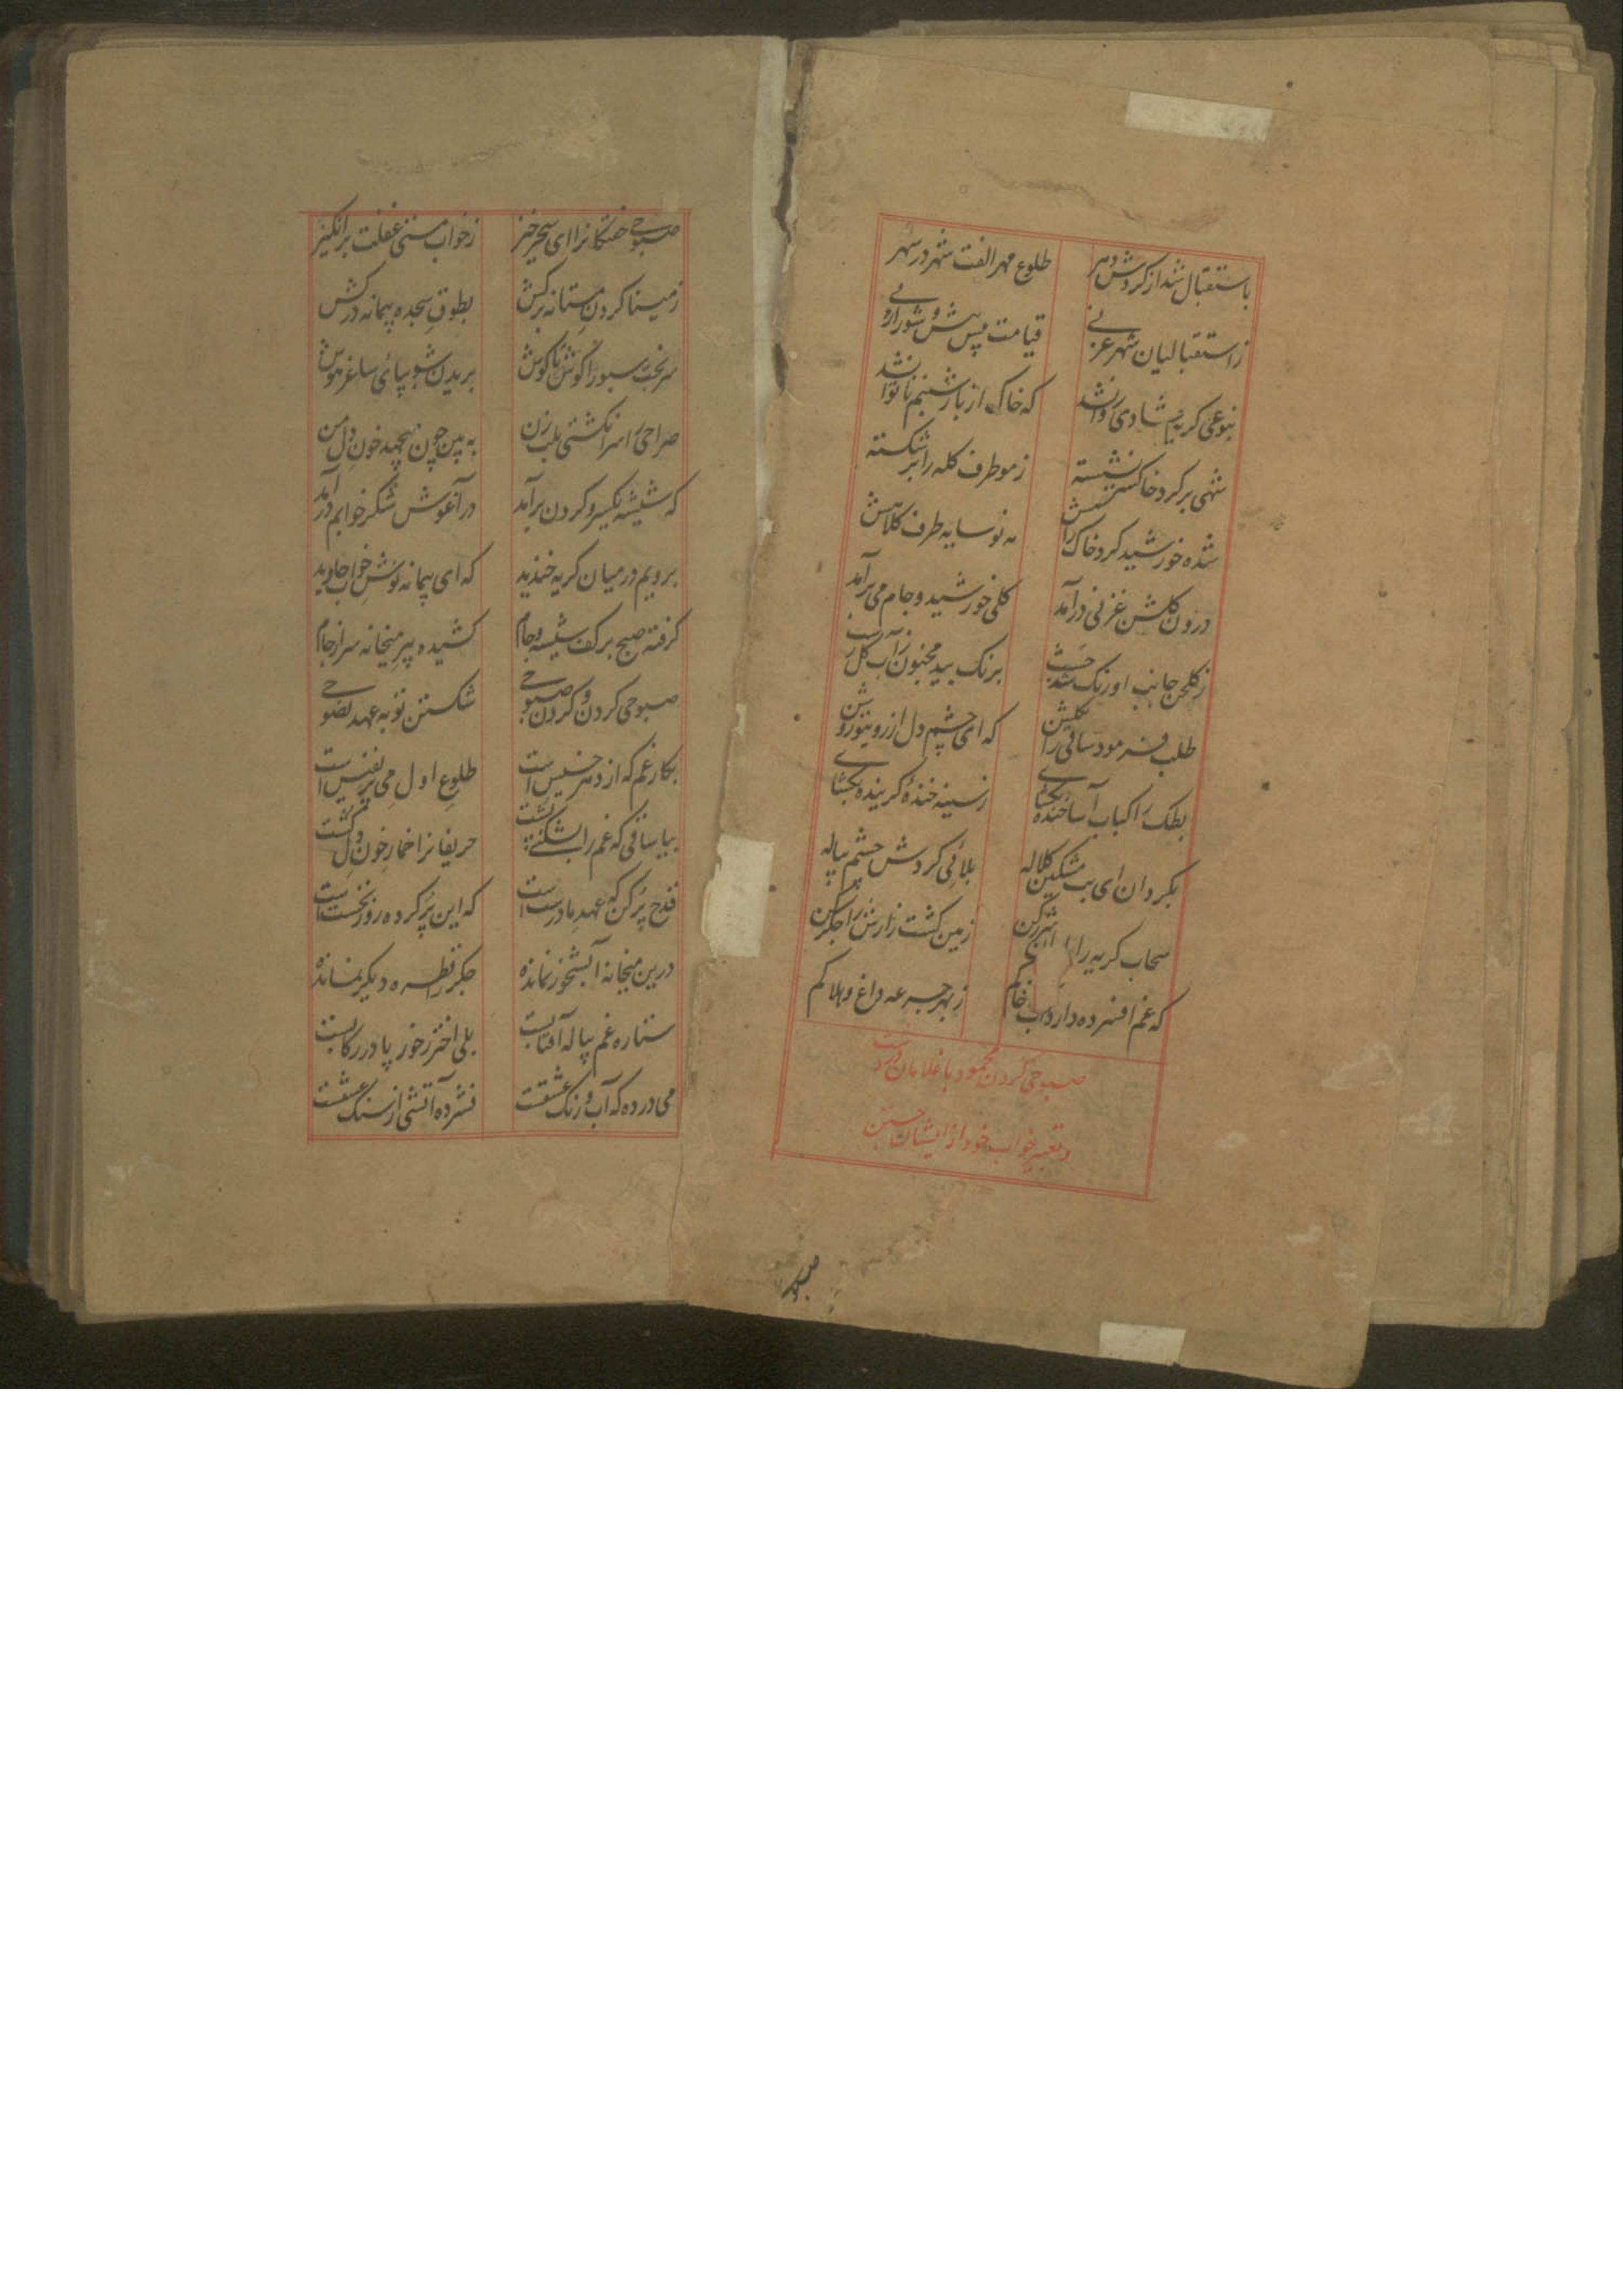 باستقبال شد از کردش دهر طلوع مهر الفت شهر در شهر
ز استقبالیان شهر غزنی قیامت پس و پیش شور
بنوعی کریه شادی روانشد که خاک از بار شبنم ناتوانشد
شهی بر کرد خاکستر نشسته ز مو طرف کله را بر شکسته
شده خورشید کرد خاک راهش مه نو سایه طرف کلاهش
درون کلشن غزنی درآمد کلی خورشید و جام می برآمد
ز کلخن جانب اورنک شد برنک بید مجنون
طلب فرمود ساقی را که ای چشم دل از روی تو روشن
بطک را کباب آسا خنده بخشای ز سینه خنده کرینده بخشای
بکردان ای بت مشکین کلاله بلائی کردش چشم پیاله
سحاب کریه را زمین کشت زارش را جکر کن
که غم افسرده دارد آب خاکم ز بهر جرعه داغ و هلاکم
صبوحی کردن محمود با غلامان
و تعبیر خواب خود از ایشان جستن
صبوحی خفتکانرا ای سحرخیز ز خواب مستی غفلت برانکیز
ز مینا کردن مستانه برکش بطوق سجده پیمانه درکش
سر نخب سبو را کوش تا کوش بریدن شو بپای ساغر هوش
صراحی را سر انکشتی بلب زن به بین چون میچهد خون دل من
که شیشه یکسر و کردن برآمد در آغوش شکر خوابم درآمد
برویم درمیان کریه خندید که ای پیمانه نوش خواب جاوید
کرفته صبح بر کف شیشه و جام کشیده پیر میخانه سر از جام
صبوحی کردن و کردن صبوحی شکستن توبه عهد نصوحی
بکار غم که از دهر خسیس است طلوع اول می پر نفیس است
بیا ساقی که غم را بشکنی پشت حریفانرا خمار خون دل کشت
قدح پر کن که عهد ما درست است که این پر کرده روز نخست است
درین میخانه آبشخور نمانده جکر را قطره دیکر نمانده
ستاره غم پیاله آفتابست بلی اختر ز خور پا در رکابست
می در ده که آب و رنک عشقست فشرده آتشی از سنک عشقست